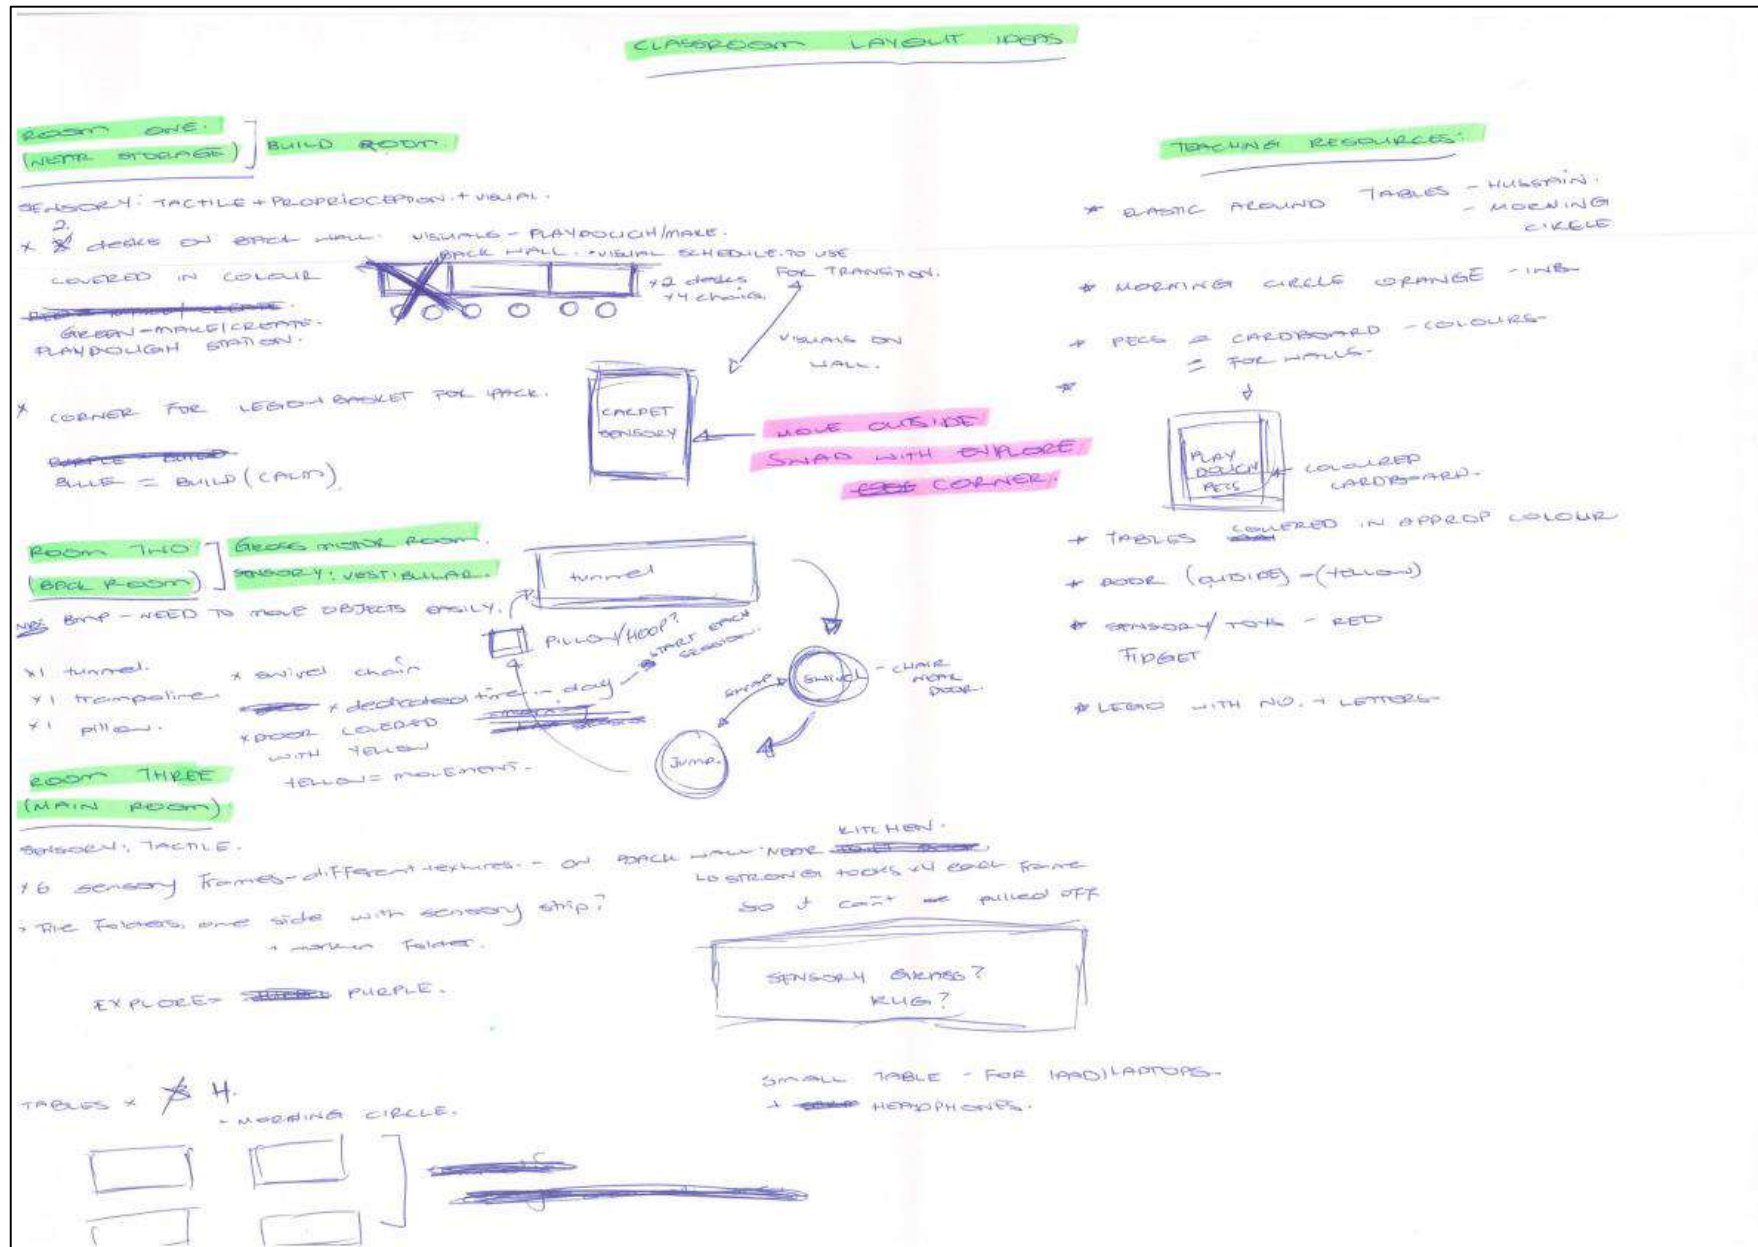 CLASSROOM LAYOUT IDEAS
ROOM ONE.
(NEAR STORAGE)
BUILD ROOM.
SENSORY: TACTILE + PROPRIOCEPTION + VISUAL.
2
x desks ON BACK WALL. VISUALS - PLAYDOUGH/MAKE.
BACK WALL. VISUAL SCHEDULE TO USE
FOR TRANSITION.
COVERED IN COLOUR
x2 desks
x4 chairs
GREEN - MAKE/CREATE.
PLAYDOUGH STATION.
VISUALS ON
WALL.
x CORNER FOR LEGO + BASKET FOR PACK.
CARPET
SENSORY
MOVE OUTSIDE
SWAP WITH EXPLORE
CORNER.
BLUE = BUILD (CALM)
ROOM TWO
(BACK ROOM)
GROSS MOTOR ROOM.
SENSORY: VESTIBULAR.
NB: BMP - NEED TO MOVE OBJECTS EASILY.
tunnel
PILLOW/HOOP?
START EACH
SESSION.
x1 tunnel.
x1 trampoline.
x1 pillow.
x swivel chair
x dedicated time in day
x DOOR COVERED
WITH YELLOW
YELLOW = MOVEMENT.
SWAP
SWIVEL
- CHAIR
NEAR
DOOR.
JUMP.
ROOM THREE
(MAIN ROOM)
SENSORY: TACTILE.
x6 sensory frames - different textures. - ON BACK WALL NEAR KITCHEN.
STRONG HOOKS x4 each frame
so it can't be pulled off
File Folders, one side with sensory strip?
+ Folder.
EXPLORE = PURPLE.
SENSORY GRASS?
RUG?
TABLES x 4.
- MORNING CIRCLE.
SMALL TABLE - FOR IPAD/LAPTOPS
+ HEADPHONES.
TEACHING RESOURCES:
* ELASTIC AROUND TABLES - HUSSAIN.
- MORNING
CIRCLE
* MORNING CIRCLE ORANGE -
* PECS = CARDBOARD - COLOURS
= FOR WALLS.
*
PLAY
DOUGH
PECS
COLOURED
CARDBOARD.
* TABLES COVERED IN APPROP COLOUR
* DOOR (OUTSIDE) - (YELLOW)
* SENSORY/TOYS - RED
FIDGET
* LEGO WITH NO. + LETTERS